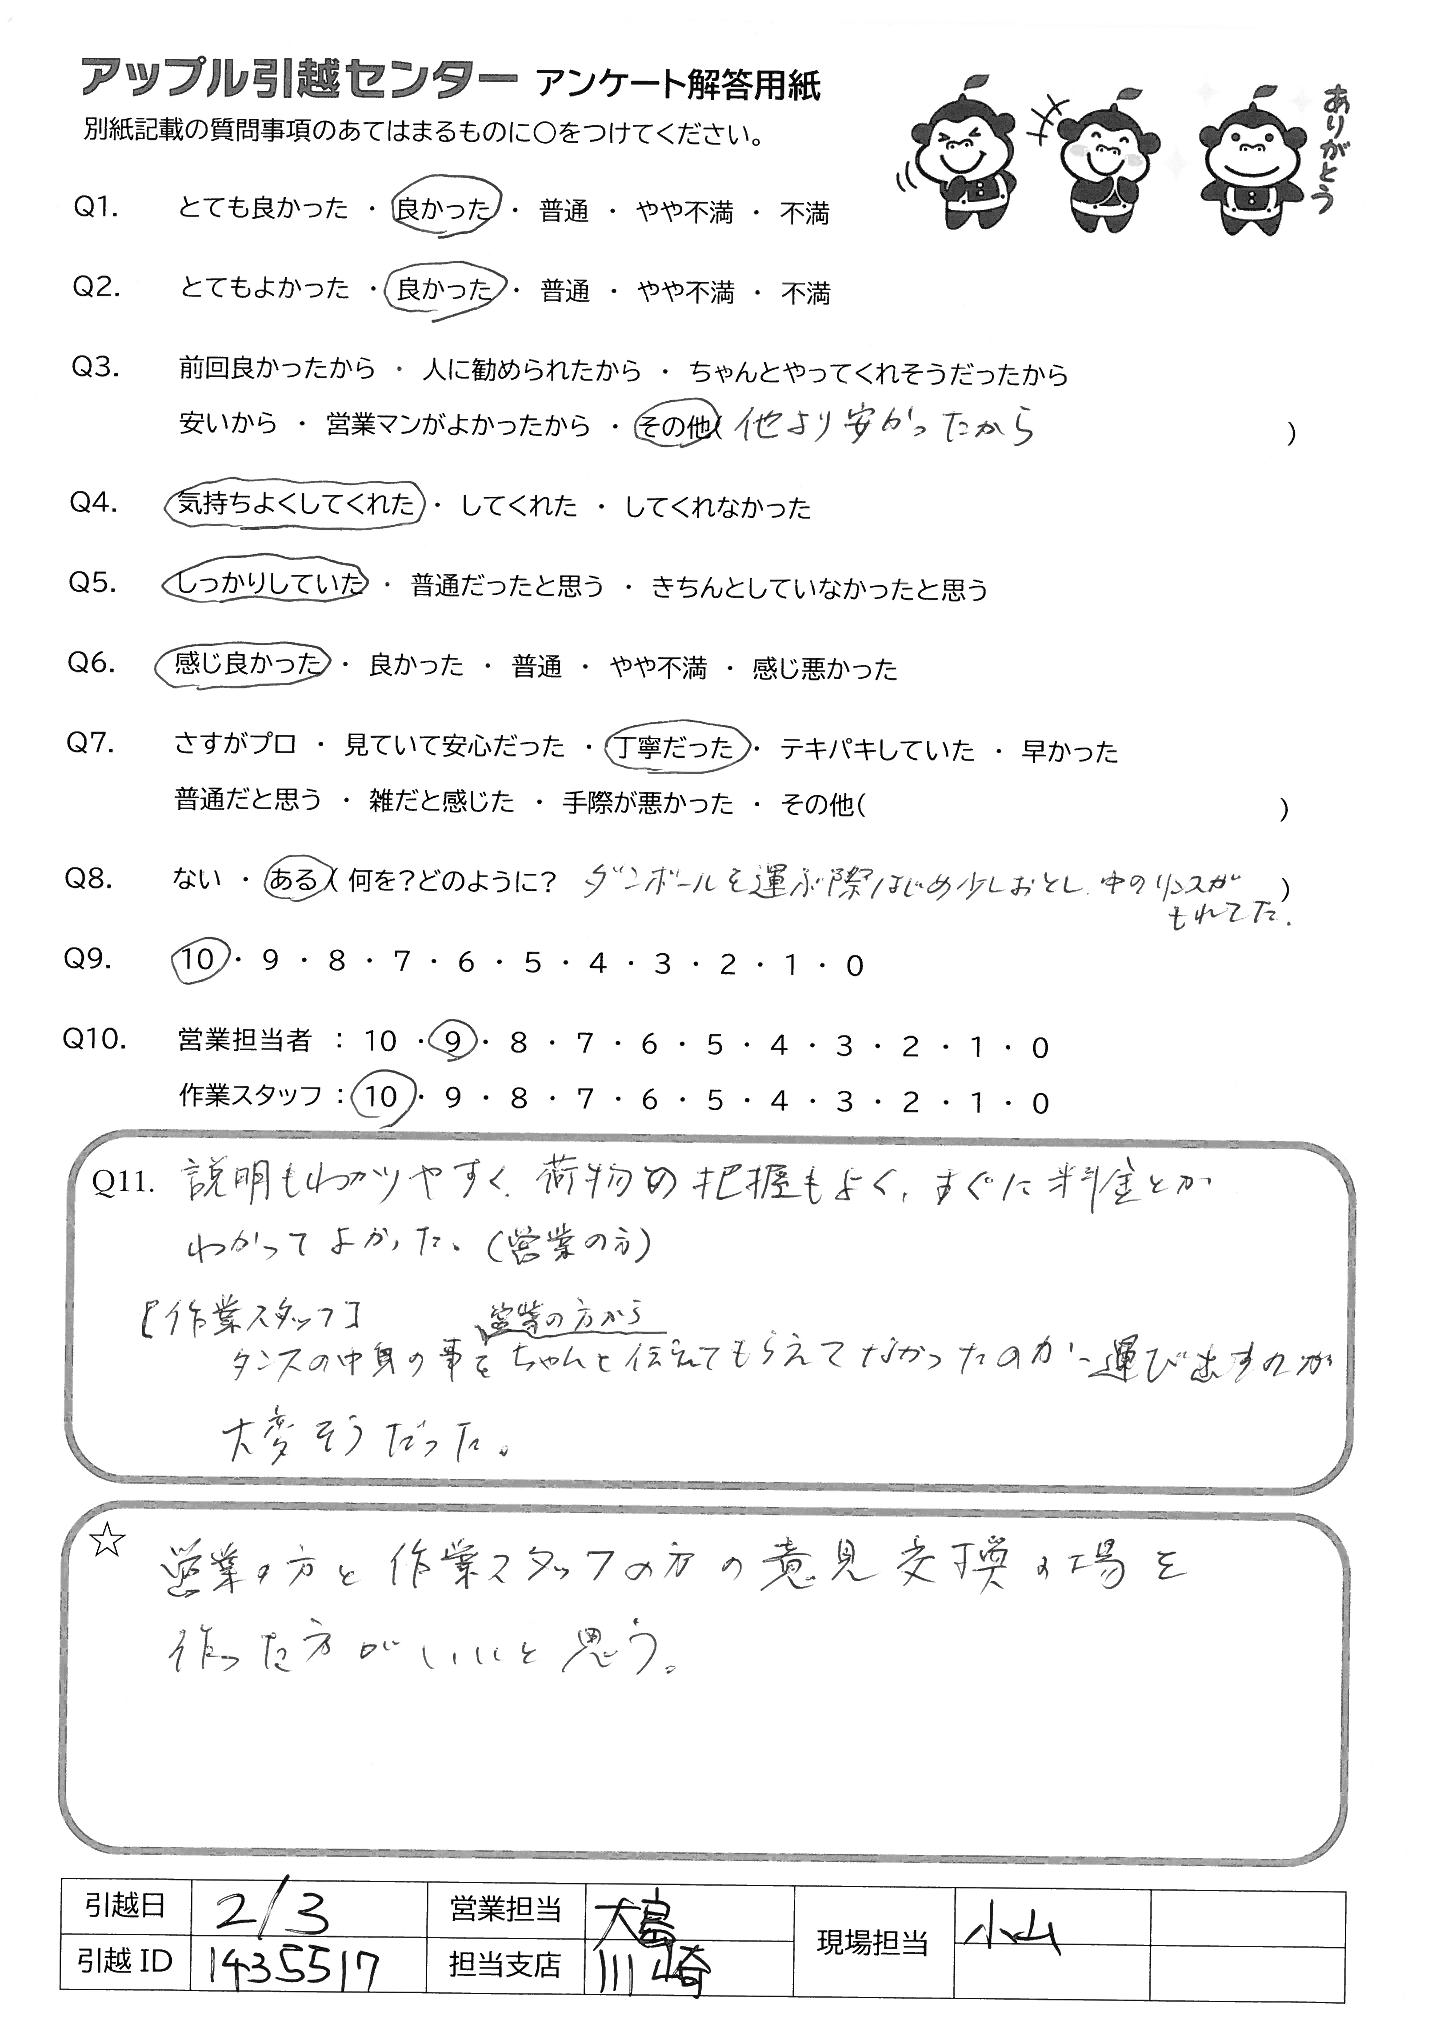 アップル引越センター アンケート解答用紙
別紙記載の質問事項のあてはまるものに〇をつけてください。
ありがとう
Q1. とても良かった ・ 良かった ・ 普通 ・ やや不満 ・ 不満
Q2. とてもよかった ・ 良かった ・ 普通 ・ やや不満 ・ 不満
Q3. 前回良かったから ・ 人に勧められたから ・ ちゃんとやってくれそうだったから
安いから ・ 営業マンがよかったから ・ その他( 他より安かったから )
Q4. 気持ちよくしてくれた ・ してくれた ・ してくれなかった
Q5. しっかりしていた ・ 普通だったと思う ・ きちんとしていなかったと思う
Q6. 感じ良かった ・ 良かった ・ 普通 ・ やや不満 ・ 感じ悪かった
Q7. さすがプロ ・ 見ていて安心だった ・ 丁寧だった ・ テキパキしていた ・ 早かった
普通だと思う ・ 雑だと感じた ・ 手際が悪かった ・ その他( )
Q8. ない ・ ある ( 何を？どのように？ ダンボールを運ぶ際はじめ少しおとし、中のリンスが )
もれてた.
Q9. 10 ・ 9 ・ 8 ・ 7 ・ 6 ・ 5 ・ 4 ・ 3 ・ 2 ・ 1 ・ 0
Q10. 営業担当者 ： 10 ・ 9 ・ 8 ・ 7 ・ 6 ・ 5 ・ 4 ・ 3 ・ 2 ・ 1 ・ 0
作業スタッフ ： 10 ・ 9 ・ 8 ・ 7 ・ 6 ・ 5 ・ 4 ・ 3 ・ 2 ・ 1 ・ 0
Q11. 説明もわかりやすく、荷物の把握もよく、すぐに料金とか
わかってよかった。(営業の方)
[作業スタッフ] 営業の方から
タンスの中身の事をちゃんと伝えてもらえてなかったのか、運び出すのが
大変そうだった。
☆ 営業の方と作業スタッフの方の意見交換の場を
作った方がいいと思う。
引越日 2/3 営業担当 大島 現場担当 小山
引越ID 1435517 担当支店 川崎